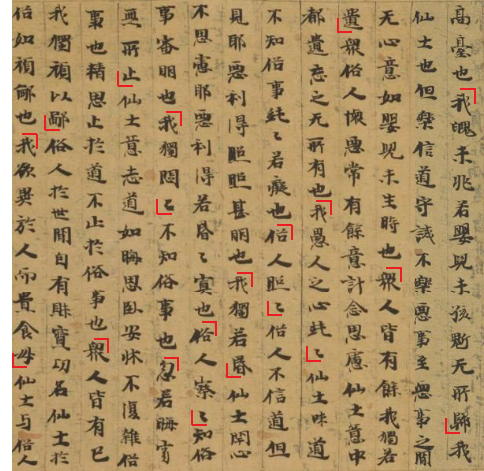 高臺也我魄未兆若嬰兒未孩魁无所歸我
仙士也但樂信道守誡不樂惡事至惡事之間
无心意如嬰兒未生時也衆人皆有餘我獨若
遺衆俗人懷惡常有餘意計念思慮仙士意中
都遺忘之无所有也我愚人之心純〻仙士味道
不知俗事純〻若癡也俗人照〻俗人不信道但
見耶惡利得照照甚明也我獨若昏仙士閉心
不思慮耶惡利得若昏〻冥也俗人察〻知俗
事審明也我獨悶〻不知俗事也忽若晦寂
無所止仙士意志道如晦思卧安牀不復雜俗
事也精思止於道不止於俗事也衆人皆有已
我獨頑以鄙俗人於世間自有財寶功名仙士於
俗如頑鄙也我欲異於人而貴食母仙士與俗人